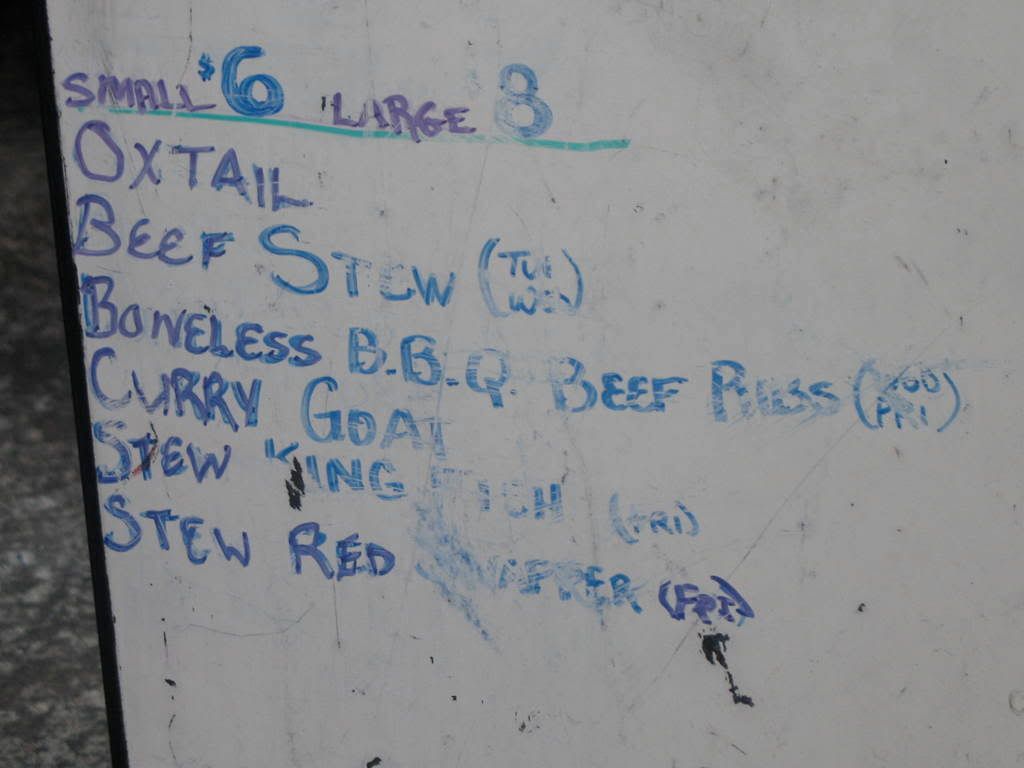 SMALL $6 LARGE 8
OXTAIL
BEEF STEW (TUE WED)
BONELESS B.B.Q. BEEF RIBS (FRI)
CURRY GOAT
STEW KING FISH (FRI)
STEW RED SNAPPER (FRI)